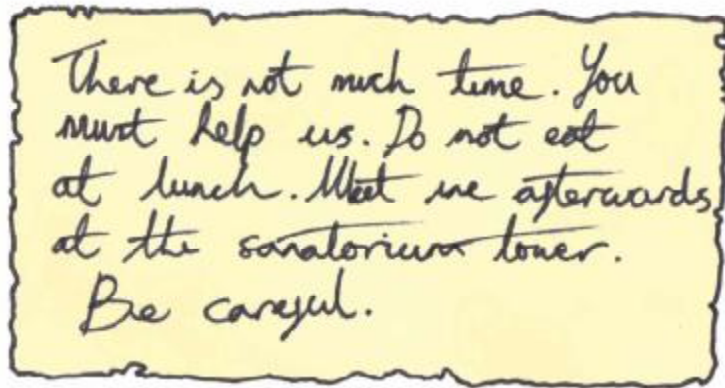 There is not much time. You
must help us. Do not eat
at lunch. Meet me afterwards
at the sanatorium tower.
Be careful.